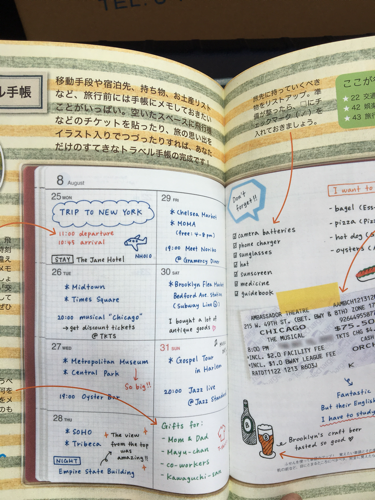 TEL. 0
ル手帳
移動手段や宿泊先、持ち物、お土産リスト
など、旅行前には手帳にメモしておきたい
ことがいっぱい。空いたスペースに飛行機
などのチケットを貼ったり、旅の思い出を
イラスト入りでつづったりすれば、あなた
だけのすてきなトラベル手帳の完成です！
旅先に持っていくべき
物をリストアップ。準
備が整ったら、□にチ
ェックマーク（✓）を
入れておきましょう。
ここが
★22 交通
★42 娯楽
★43 旅行
8 August
25 MON
TRIP TO NEW YORK
11:00 departure
10:45 arrival
NH010
STAY The Jane Hotel
26 TUE
* Midtown
* Times Square
20:00 musical "Chicago"
→ get discount tickets
@ TKTS
27 WED
* Metropolitan Museum
* Central Park
So big!!
19:00 Oyster Bar
28 THU
* SOHO
* Tribeca
← The view
from the top
was
amazing!!
NIGHT
Empire State Building
29 FRI
* Chelsea Market
* MOMA
(free: 4-8 pm)
19:00 Meet Noriko
@ Gramercy Diner
30 SAT
* Brooklyn Flea Market
Bedford Ave. Station
(Subway Line L)
I bought a lot of
antique goods
31 SUN
* Gospel Tour
in Harlem
20:00 Jazz live
@ Jazz Standard
Gifts for:
- Mom & Dad
- Mayu-chan
- co-workers
- Kawaguchi-san
Don't
forget!!
camera batteries
phone charger
sunglasses
hat
sunscreen
medicine
guidebook
I want to
bagel (Ess-
pizza (
hot dog (
oysters (
AMBASSADOR THEATRE
219 W. 49TH ST. (BET. BWY & 8TH)
CHICAGO
THE MUSICAL
$75.50
ORCH
*INCL. $2.0 FACILITY FEE
*INCL. $1.0 BWAY LEAGUE FEE
Fantastic
But their Engli
I have to study
Brooklyn's craft beer
tasted so good ♡